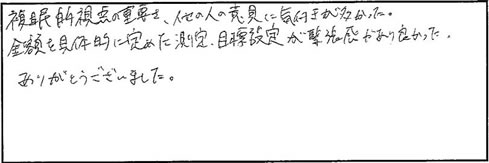 複眼的視点の重要さ、他の人の意見に気付きが多かった。
金額を具体的に定めた測定、目標設定が緊張感があり良かった。
ありがとうございました。